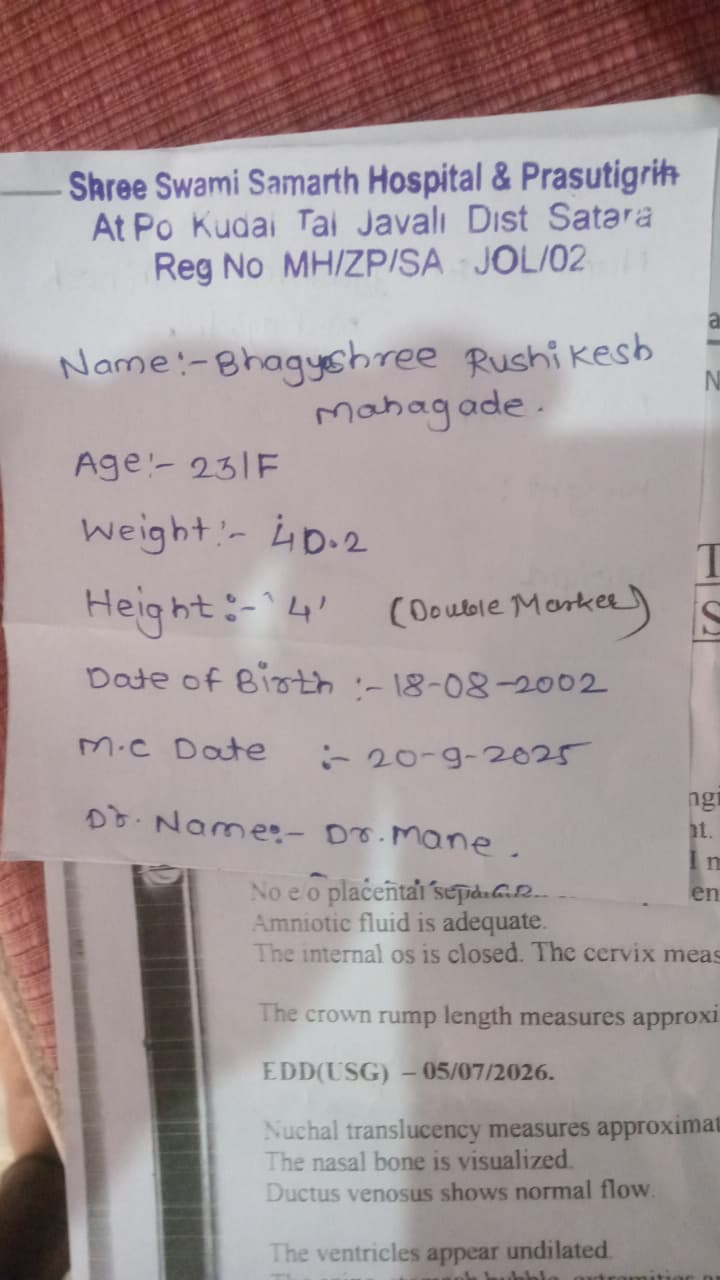 Shree Swami Samarth Hospital & Prasutigrih
At Po Kudal Tal Javali Dist Satara
Reg No MH/ZP/SA JOL/02
Name:- Bhagyshree Rushikesh
Mahagade.
Age:- 23/F
Weight:- 40.2
Height:- 4' (Double Marker)
Date of Birth :- 18-08-2002
M.C Date :- 20-9-2025
Dr. Name:- Dr. Mane.
No e/o placental
Amniotic fluid is adequate.
The internal os is closed. The cervix meas
The crown rump length measures approxi
EDD(USG) – 05/07/2026.
Nuchal translucency measures approximat
The nasal bone is visualized.
Ductus venosus shows normal flow.
The ventricles appear undilated.